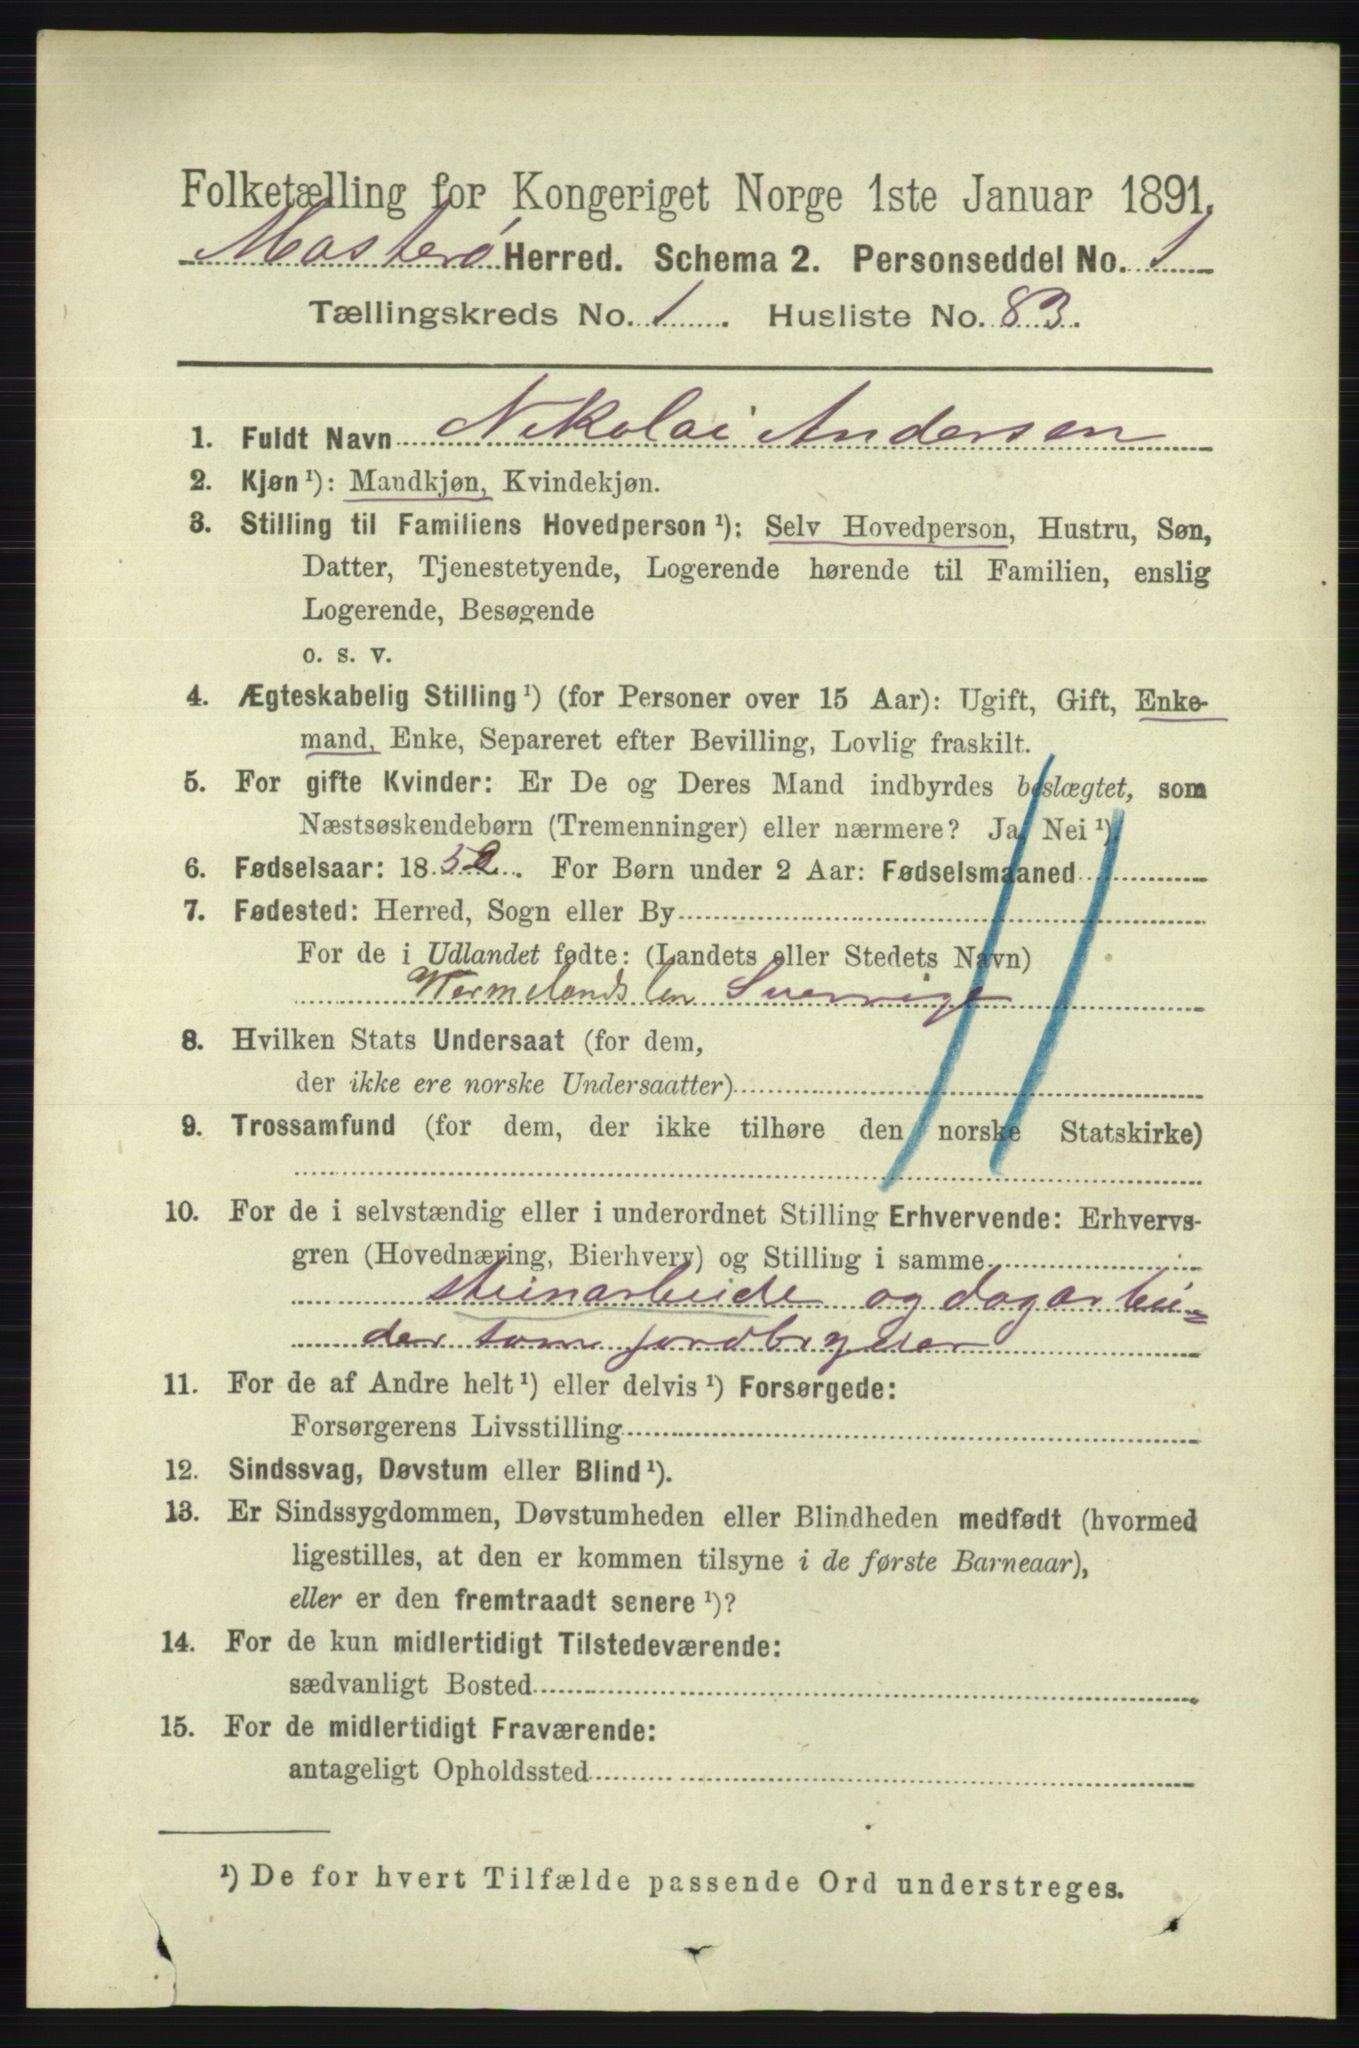 Folketælling for Kongeriget Norge 1ste Januar 1891.
Mosterø Herred. Schema 2. Personseddel No. 1
Tællingskreds No. 1. Husliste No. 83.
1. Fuldt Navn Nikolai Andersen
2. Kjøn ¹): Mandkjøn, Kvindekjøn.
3. Stilling til Familiens Hovedperson ¹): Selv Hovedperson, Hustru, Søn,
Datter, Tjenestetyende, Logerende hørende til Familien, enslig
Logerende, Besøgende
o. s. v.
4. Ægteskabelig Stilling ¹) (for Personer over 15 Aar): Ugift, Gift, Enke-
mand, Enke, Separeret efter Bevilling, Lovlig fraskilt.
5. For gifte Kvinder: Er De og Deres Mand indbyrdes beslægtet, som
Næstsøskendebørn (Tremenninger) eller nærmere? Ja, Nei ¹).
6. Fødselsaar: 1852. For Børn under 2 Aar: Fødselsmaaned
7. Fødested: Herred, Sogn eller By
For de i Udlandet fødte: (Landets eller Stedets Navn)
Wermelandslen Sverrige
8. Hvilken Stats Undersaat (for dem,
der ikke ere norske Undersaatter)
9. Trossamfund (for dem, der ikke tilhøre den norske Statskirke)
10. For de i selvstændig eller i underordnet Stilling Erhvervende: Erhvervs-
gren (Hovednæring, Bierhverv) og Stilling i samme
steinarbeide og dagarbei=
der som jordbryder
11. For de af Andre helt ¹) eller delvis ¹) Forsørgede:
Forsørgerens Livsstilling
12. Sindssvag, Døvstum eller Blind ¹).
13. Er Sindssygdommen, Døvstumheden eller Blindheden medfødt (hvormed
ligestilles, at den er kommen tilsyne i de første Barneaar),
eller er den fremtraadt senere ¹)?
14. For de kun midlertidigt Tilstedeværende:
sædvanligt Bosted
15. For de midlertidigt Fraværende:
antageligt Opholdssted
¹) De for hvert Tilfælde passende Ord understreges.